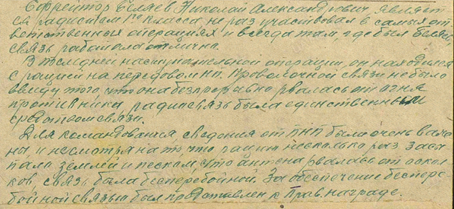 Ефрейтор Беляев Николай Александрович является
радистом 1го класса не раз участвовал в самых от
ветственных операциях и всегда там где был Беляев
связь работала отлично.
В последней наступательной операции он находился
с рацией на передовом НП. Проволочной связи не было
ввиду того, что она беспрерывно рвалась от огня
противника радиосвязь была единственным
средством связи.
Для командования сведения от ПНП были очень важ
ны и несмотря на то что рацию несколько раз засы
пало землей и песком, что антенна рвалась от оскол
ков, связь была бесперебойной. За обеспечение беспере
бойной связи был представлен к Прав. награде.